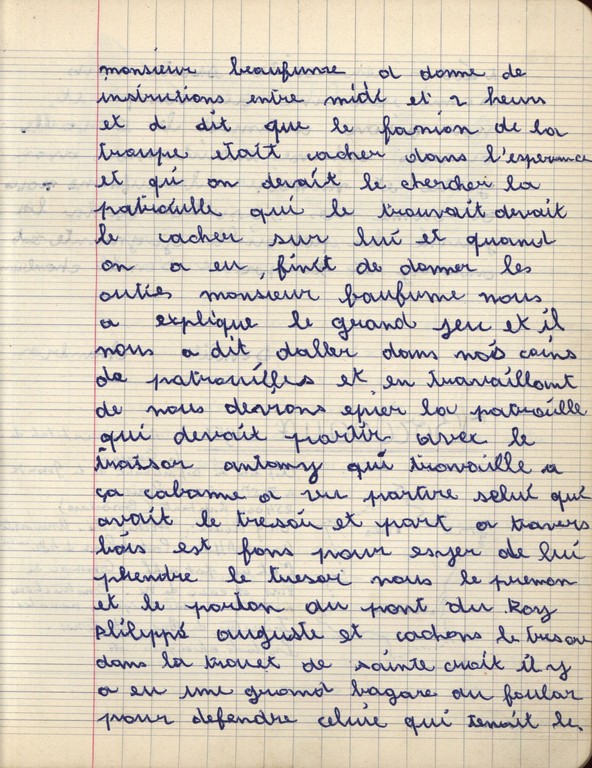 monsieur beaufumre a donne de
instructions entre midi et 2 heurs
et d dit que le fanion de la
troupe etait cacher dans l'esperance
et qu on devait le chercher la
patrouille qui le trouvait devait
le cacher sur lui et quand
on a eu finit de donner les
outies monsieur baufume nous
a explique le grand jeu et il
nous a dit daller dans nos coins
de patrouilles et en travaillant
de nous devrons epier la patrouille
qui devait partir avec le
tresor antony qui travaille a
ça cabanne a vu partire selui qui
avait le tresoi et part a travers
bois est fons pour esyer de lui
phendre le tresoi nous le prenon
et le porton au pont du Roy
philippe auguste et cachons le tresor
dans la trouet de sainte croit il y
a eu une grand bagare au foular
pour defendre celuie qui tenait le